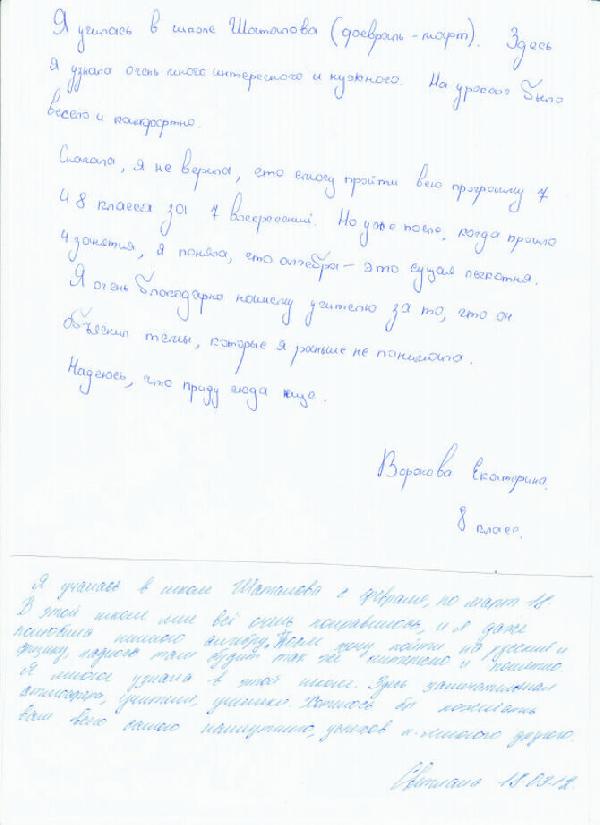 Я училась в школе Шаталова (февраль-март). Здесь
я узнала очень много интересного и нужного. На уроках было
весело и комфортно.
Сначала, я не верила, что смогу пройти всю программу 7
и 8 класса за 7 воскресений. Но уже после, когда прошло
4 занятия, я поняла, что алгебра - это сущая лёгкотня.
Я очень благодарна нашему учителю за то, что он
объяснил темы, которые я раньше не понимала.
Надеюсь, что приду сюда ещё.
Екатерина.
8 класс.
Я училась в школе Шаталова с февраля, по март 18.
В этой школе мне всё очень понравилось, и я даже
полюбила алгебру. хочу пойти на русский и
физику, там будет так же интересно и понятно
Я много узнала в этой школе. Здесь замечательная
атмосфера, учителя, ученики. Хотелось бы пожелать
вам всего самого наилучшего, успехов и много другого.
Светлана 18.03.12.